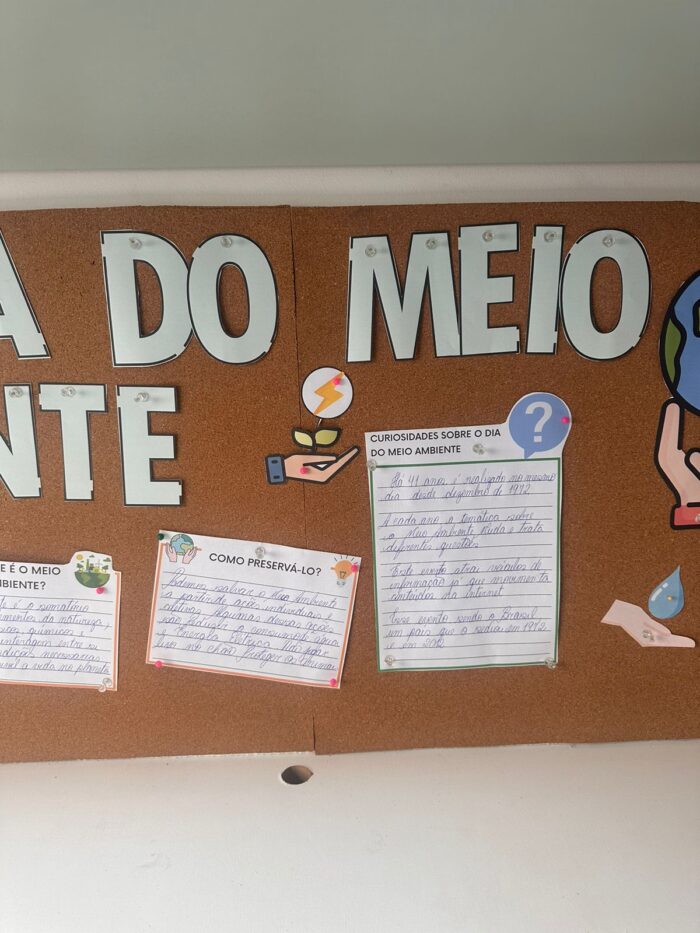 A DO MEIO
NTE
CURIOSIDADES SOBRE O DIA
DO MEIO AMBIENTE
?
Há 41 anos, é realizado no mesmo
dia desde dezembro de 1972
A cada ano a temática sobre
o meio ambiente muda e trata
diferentes questões
Este evento atrai veículos de
informação já que movimenta
conteúdos na internet
Esse evento sendo o Brasil
um país que o sediou em 1972
e em 2012
COMO PRESERVÁ-LO?
Podemos salvar o Meio Ambiente
a partir de ações individuais e
coletivas. Algumas dessas ações
são Reduzir o consumo de água
e Energia Elétrica
lixo no chão Proteger os
E É O MEIO
BIENTE?
é o somatório
mentos da natureza,
químicos e
interagem entre si
condições necessárias
a vida no planeta